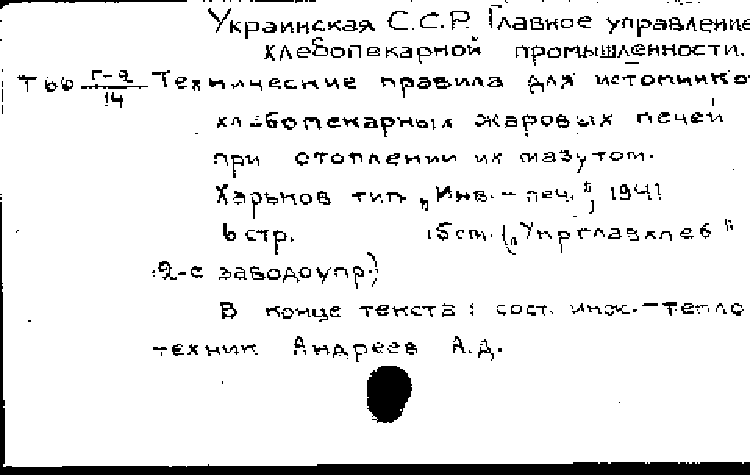 Украинская С.С.Р. Главное управление
хлебопекарной промышленности.
Т66 Г-2/14 Технические правила для истопнико
хлебопекарных жаровых печей
при отоплении их мазутом.
Харьков тип. „Инв.-печ.", 1941
6 стр. 15 cm. („Укрглавхлеб"
2-е заводоупр.)
В конце текста: сост. инж.-тепло
техник Андреев А.Д.